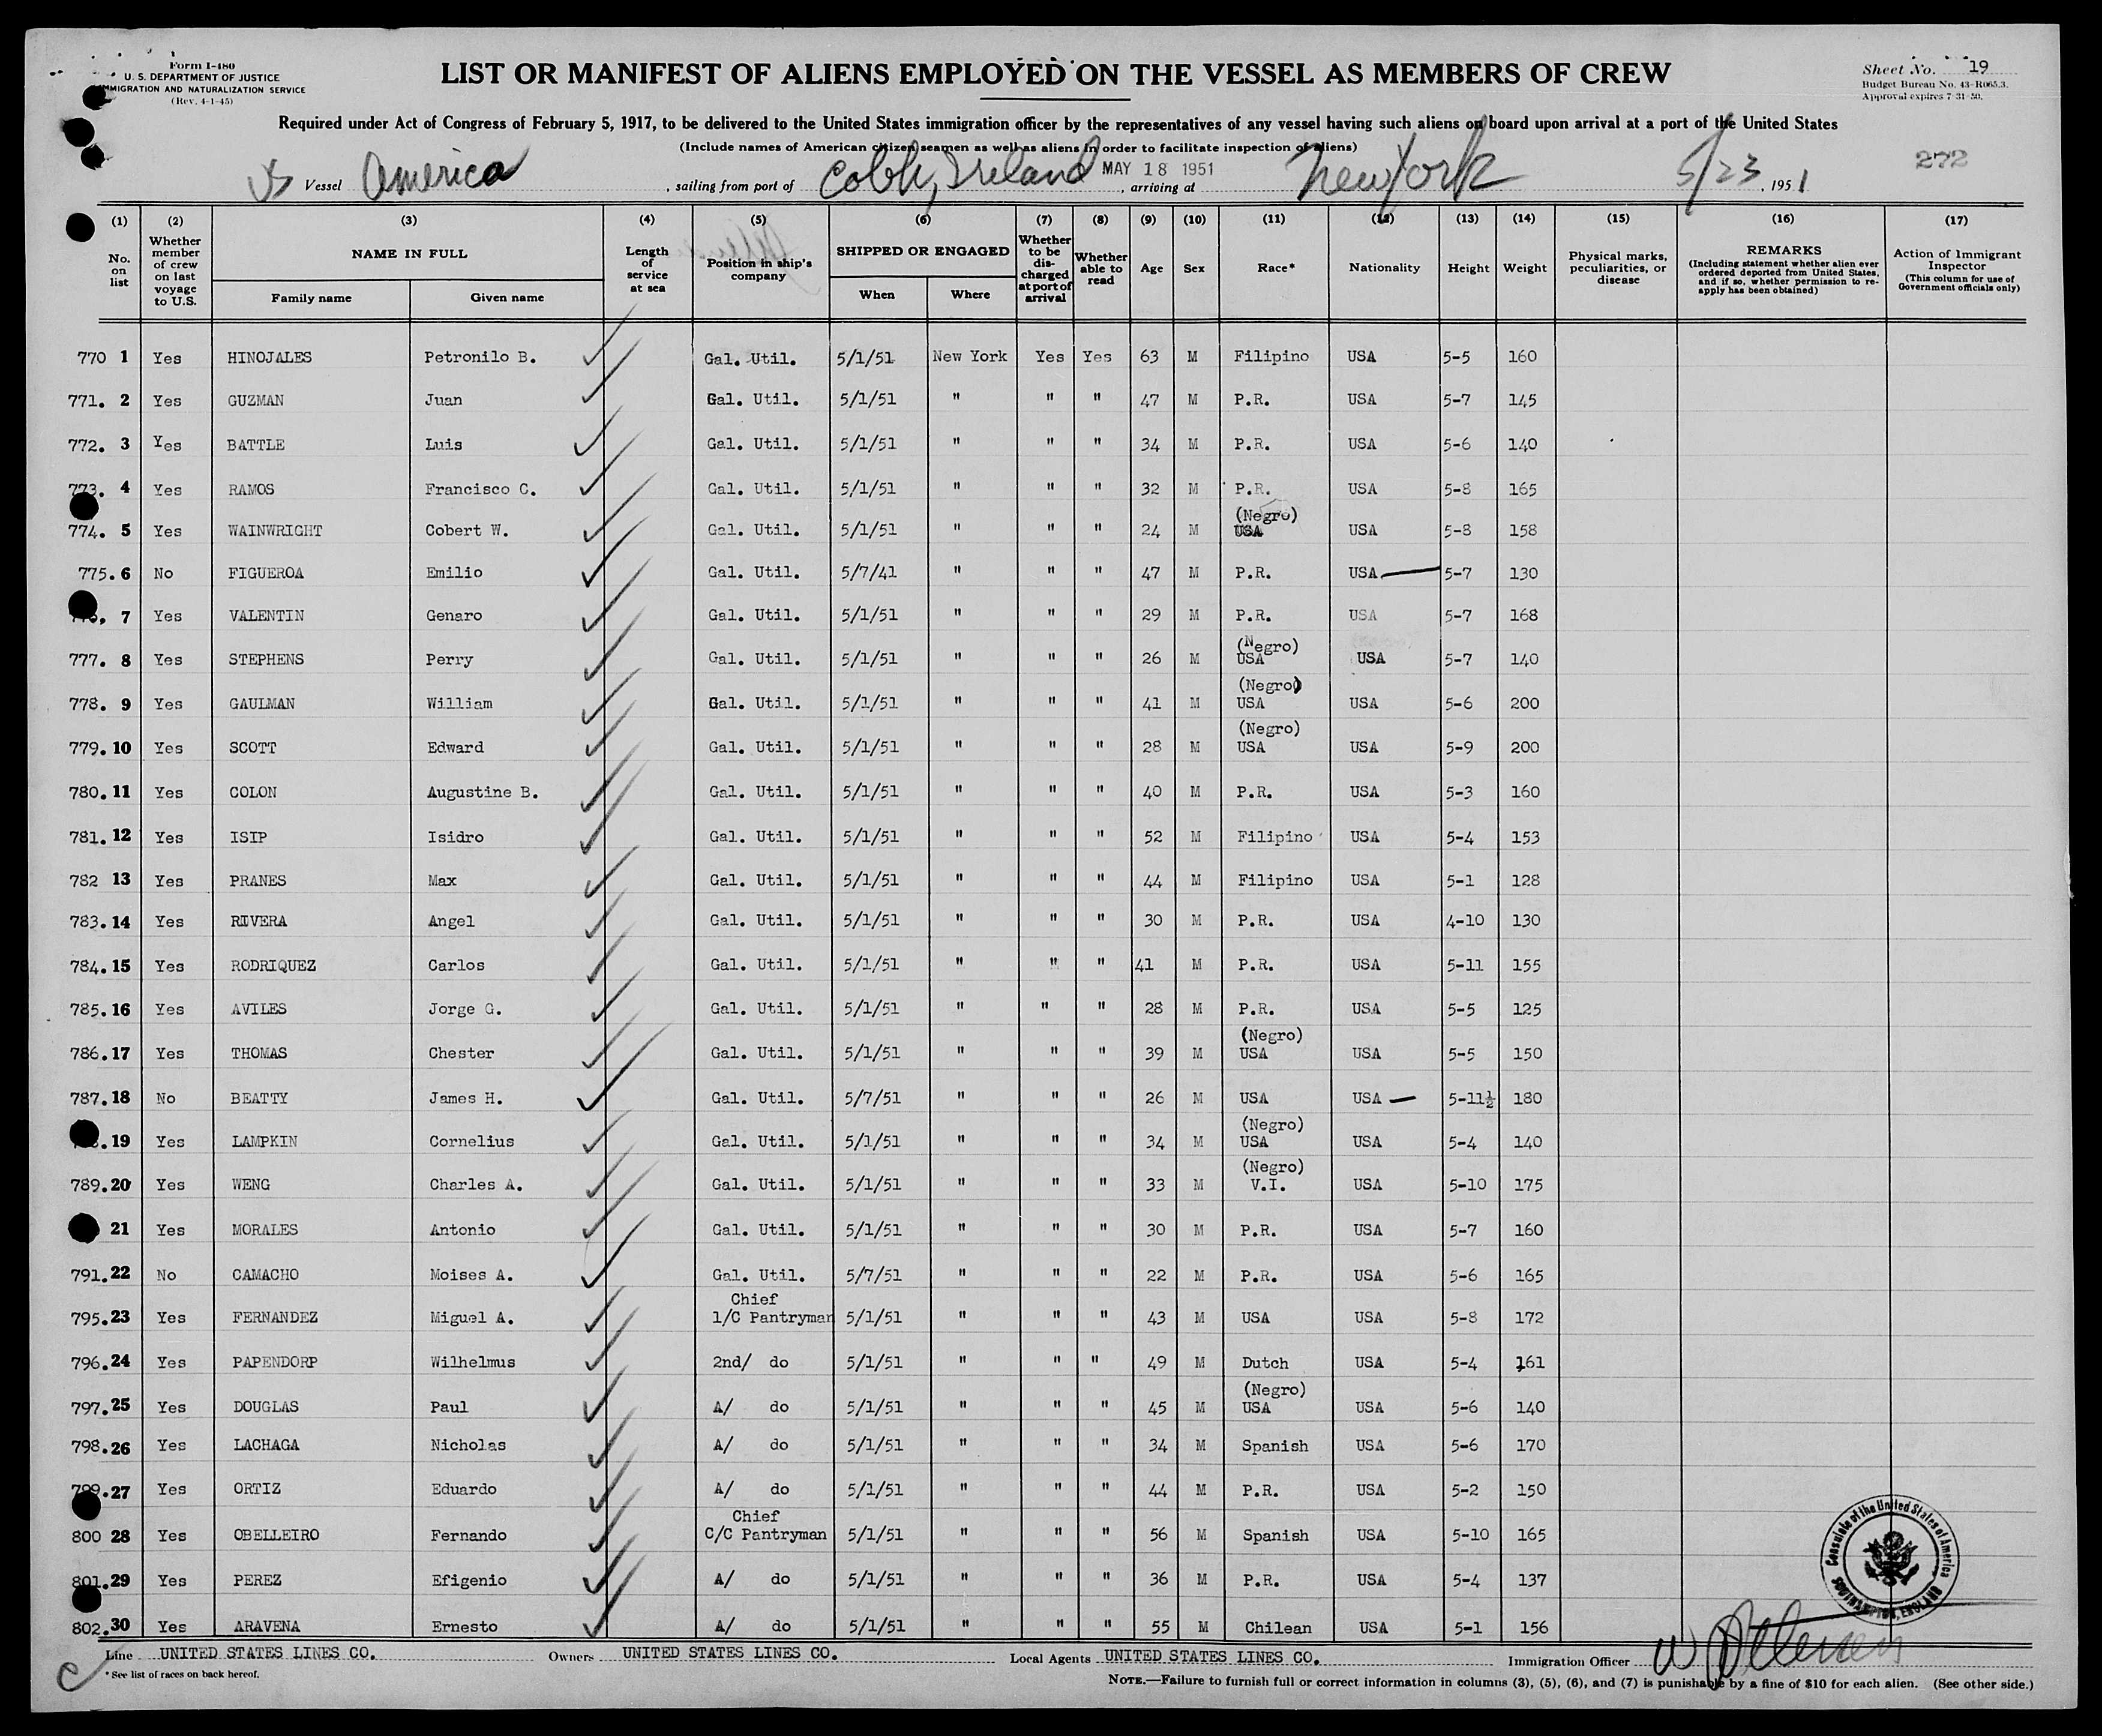 Form I-480
U. S. DEPARTMENT OF JUSTICE
IMMIGRATION AND NATURALIZATION SERVICE
(Rev. 4-1-45)
LIST OR MANIFEST OF ALIENS EMPLOYED ON THE VESSEL AS MEMBERS OF CREW
Sheet No. 19
Budget Bureau No. 43-R065.3.
Approval expires 7-31-50.
Required under Act of Congress of February 5, 1917, to be delivered to the United States immigration officer by the representatives of any vessel having such aliens on board upon arrival at a port of the United States
(Include names of American citizen seamen as well as aliens in order to facilitate inspection of aliens)
272
Vessel America, sailing from port of Cobh, Ireland MAY 18 1951, arriving at New York 5/23, 1951
(1) (2) (3) (4) (5) (6) (7) (8) (9) (10) (11) (12) (13) (14) (15) (16) (17)
No. on list
Whether member of crew on last voyage to U.S.
NAME IN FULL
Family name Given name
Length of service at sea
Position in ship's company
SHIPPED OR ENGAGED
When Where
Whether to be discharged at port of arrival
Whether able to read
Age
Sex
Race*
Nationality
Height
Weight
Physical marks, peculiarities, or disease
REMARKS
(Including statement whether alien ever ordered deported from United States, and if so, whether permission to re-apply has been obtained)
Action of Immigrant Inspector
(This column for use of Government officials only)
770 1 Yes HINOJALES Petronilo B. Gal. Util. 5/1/51 New York Yes Yes 63 M Filipino USA 5-5 160
771. 2 Yes GUZMAN Juan Gal. Util. 5/1/51 " " " 47 M P.R. USA 5-7 145
772. 3 Yes BATTLE Luis Gal. Util. 5/1/51 " " " 34 M P.R. USA 5-6 140
773. 4 Yes RAMOS Francisco C. Gal. Util. 5/1/51 " " " 32 M P.R. USA 5-8 165
(Negro)
774. 5 Yes WAINWRIGHT Cobert W. Gal. Util. 5/1/51 " " " 24 M USA USA 5-8 158
775. 6 No FIGUEROA Emilio Gal. Util. 5/7/41 " " " 47 M P.R. USA 5-7 130
7 Yes VALENTIN Genaro Gal. Util. 5/1/51 " " " 29 M P.R. USA 5-7 168
(Negro)
777. 8 Yes STEPHENS Perry Gal. Util. 5/1/51 " " " 26 M USA USA 5-7 140
(Negro)
778. 9 Yes GAULMAN William Gal. Util. 5/1/51 " " " 41 M USA USA 5-6 200
(Negro)
779. 10 Yes SCOTT Edward Gal. Util. 5/1/51 " " " 28 M USA USA 5-9 200
780. 11 Yes COLON Augustine B. Gal. Util. 5/1/51 " " " 40 M P.R. USA 5-3 160
781. 12 Yes ISIP Isidro Gal. Util. 5/1/51 " " " 52 M Filipino USA 5-4 153
782 13 Yes PRANES Max Gal. Util. 5/1/51 " " " 44 M Filipino USA 5-1 128
783. 14 Yes RIVERA Angel Gal. Util. 5/1/51 " " " 30 M P.R. USA 4-10 130
784. 15 Yes RODRIQUEZ Carlos Gal. Util. 5/1/51 " " " 41 M P.R. USA 5-11 155
785. 16 Yes AVILES Jorge G. Gal. Util. 5/1/51 " " " 28 M P.R. USA 5-5 125
(Negro)
786. 17 Yes THOMAS Chester Gal. Util. 5/1/51 " " " 39 M USA USA 5-5 150
787. 18 No BEATTY James H. Gal. Util. 5/7/51 " " " 26 M USA USA 5-11½ 180
(Negro)
19 Yes LAMPKIN Cornelius Gal. Util. 5/1/51 " " " 34 M USA USA 5-4 140
(Negro)
789. 20 Yes WENG Charles A. Gal. Util. 5/1/51 " " " 33 M V.I. USA 5-10 175
21 Yes MORALES Antonio Gal. Util. 5/1/51 " " " 30 M P.R. USA 5-7 160
791. 22 No CAMACHO Moises A. Gal. Util. 5/7/51 " " " 22 M P.R. USA 5-6 165
Chief
795. 23 Yes FERNANDEZ Miguel A. 1/C Pantryman 5/1/51 " " " 43 M USA USA 5-8 172
796. 24 Yes PAPENDORP Wilhelmus 2nd/ do 5/1/51 " " " 49 M Dutch USA 5-4 161
(Negro)
797. 25 Yes DOUGLAS Paul A/ do 5/1/51 " " " 45 M USA USA 5-6 140
798. 26 Yes LACHAGA Nicholas A/ do 5/1/51 " " " 34 M Spanish USA 5-6 170
799. 27 Yes ORTIZ Eduardo A/ do 5/1/51 " " " 44 M P.R. USA 5-2 150
Chief
800 28 Yes OBELLEIRO Fernando C/C Pantryman 5/1/51 " " " 56 M Spanish USA 5-10 165
801. 29 Yes PEREZ Efigenio A/ do 5/1/51 " " " 36 M P.R. USA 5-4 137
802. 30 Yes ARAVENA Ernesto A/ do 5/1/51 " " " 55 M Chilean USA 5-1 156
Consulate of the United States of America
SOUTHAMPTON, ENGLAND
Line UNITED STATES LINES CO. Owners UNITED STATES LINES CO. Local Agents UNITED STATES LINES CO. Immigration Officer
*See list of races on back hereof.
NOTE.—Failure to furnish full or correct information in columns (3), (5), (6), and (7) is punishable by a fine of $10 for each alien. (See other side.)